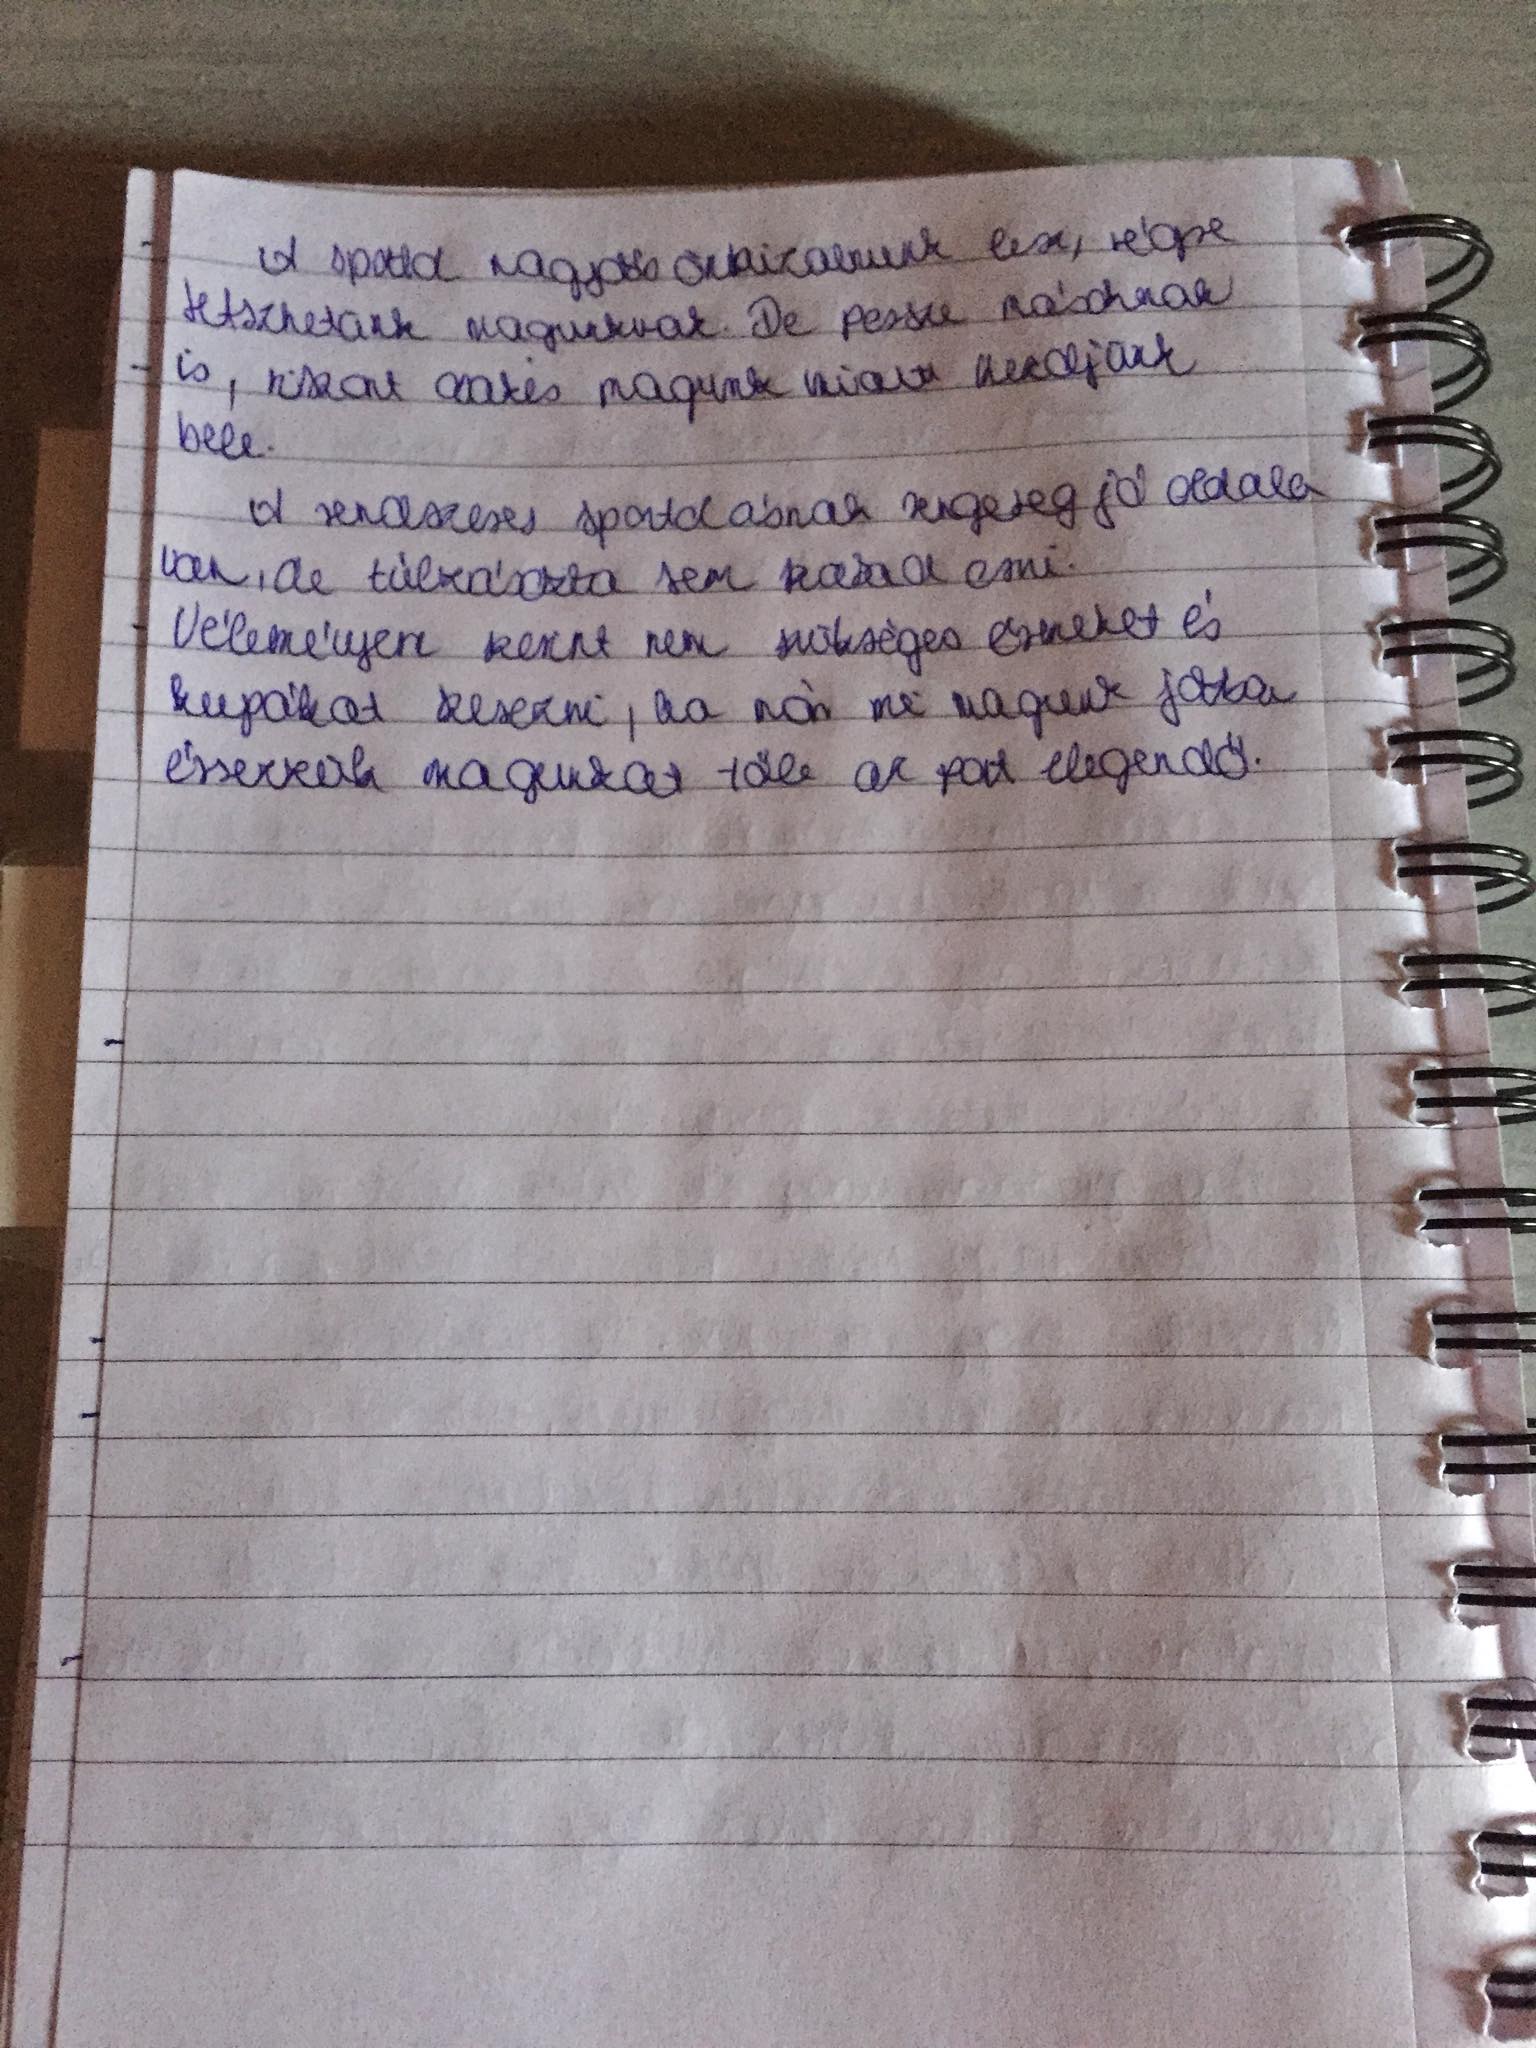 A sporttól nagyobb önbizalmunk lesz, végre
tetszhetünk magunknak. De persze másoknak
is, viszont úgyis magunk miatt kezdjünk
bele.
A rendszeres sportolásnak rengeteg jó oldala
van, de túlzásokba sem szabad esni.
Véleményem szerint nem szükséges érmeket és
kupákat szerezni, ha már mi magunk jobban
érezzük magunkat tőle az pont elegendő.